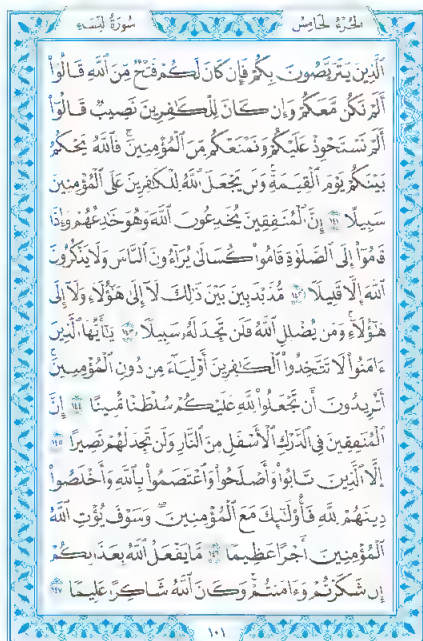 سُورَةُ النِّسَاءِ
الجُزْءُ الْخَامِسُ
ٱلَّذِينَ يَتَرَبَّصُونَ بِكُمْ فَإِن كَانَ لَكُمْ فَتْحٌ مِّنَ ٱللَّهِ قَالُوٓا۟
أَلَمْ نَكُن مَّعَكُمْ وَإِن كَانَ لِلْكَٰفِرِينَ نَصِيبٌ قَالُوٓا۟
أَلَمْ نَسْتَحْوِذْ عَلَيْكُمْ وَنَمْنَعْكُم مِّنَ ٱلْمُؤْمِنِينَ ۚ فَٱللَّهُ يَحْكُمُ
بَيْنَكُمْ يَوْمَ ٱلْقِيَٰمَةِ ۗ وَلَن يَجْعَلَ ٱللَّهُ لِلْكَٰفِرِينَ عَلَى ٱلْمُؤْمِنِينَ
سَبِيلًا ١٤١ إِنَّ ٱلْمُنَٰفِقِينَ يُخَٰدِعُونَ ٱللَّهَ وَهُوَ خَٰدِعُهُمْ وَإِذَا
قَامُوٓا۟ إِلَى ٱلصَّلَوٰةِ قَامُوا۟ كُسَالَىٰ يُرَآءُونَ ٱلنَّاسَ وَلَا يَذْكُرُونَ
ٱللَّهَ إِلَّا قَلِيلًا ١٤٢ مُّذَبْذَبِينَ بَيْنَ ذَٰلِكَ لَآ إِلَىٰ هَٰٓؤُلَآءِ وَلَآ إِلَىٰ
هَٰٓؤُلَآءِ ۚ وَمَن يُضْلِلِ ٱللَّهُ فَلَن تَجِدَ لَهُۥ سَبِيلًا ١٤٣ يَٰٓأَيُّهَا ٱلَّذِينَ
ءَامَنُوا۟ لَا تَتَّخِذُوا۟ ٱلْكَٰفِرِينَ أَوْلِيَآءَ مِن دُونِ ٱلْمُؤْمِنِينَ ۚ
أَتُرِيدُونَ أَن تَجْعَلُوا۟ لِلَّهِ عَلَيْكُمْ سُلْطَٰنًا مُّبِينًا ١٤٤ إِنَّ
ٱلْمُنَٰفِقِينَ فِى ٱلدَّرْكِ ٱلْأَسْفَلِ مِنَ ٱلنَّارِ وَلَن تَجِدَ لَهُمْ نَصِيرًا ١٤٥
إِلَّا ٱلَّذِينَ تَابُوا۟ وَأَصْلَحُوا۟ وَٱعْتَصَمُوا۟ بِٱللَّهِ وَأَخْلَصُوا۟
دِينَهُمْ لِلَّهِ فَأُو۟لَٰٓئِكَ مَعَ ٱلْمُؤْمِنِينَ ۖ وَسَوْفَ يُؤْتِ ٱللَّهُ
ٱلْمُؤْمِنِينَ أَجْرًا عَظِيمًا ١٤٦ مَّا يَفْعَلُ ٱللَّهُ بِعَذَابِكُمْ
إِن شَكَرْتُمْ وَءَامَنتُمْ ۚ وَكَانَ ٱللَّهُ شَاكِرًا عَلِيمًا ١٤٧
١٠١